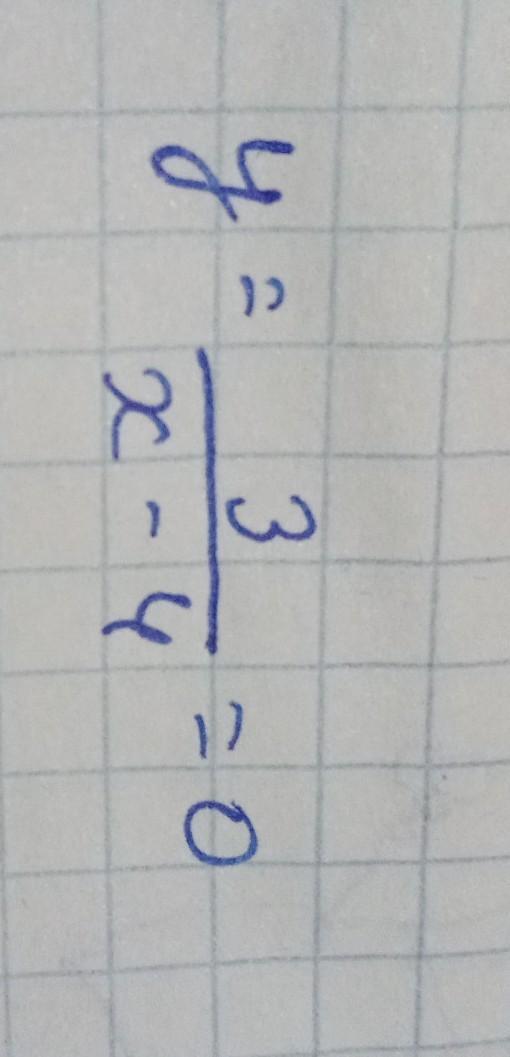 y = 3/(x - 4) = 0